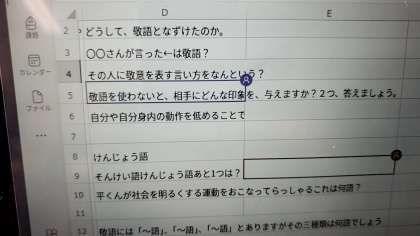 D
E
2 どうして、敬語となずけたのか。
3 〇〇さんが言った←は敬語？
4 その人に敬意を表す言い方をなんという？
5 敬語を使わないと、相手にどんな印象を、与えますか？２つ、答えましょう。
6 自分や自分身内の動作を低めることで
7
8 けんじょう語
9 そんけい語けんじょう語あと1つは？
10 平くんが社会を明るくする運動をおこなってらっしゃるこれは何語？
11
12 敬語には「〜語」、「〜語」、「〜語」とありますがその三種類は何語でしょう
課題
カレンダー
ファイル